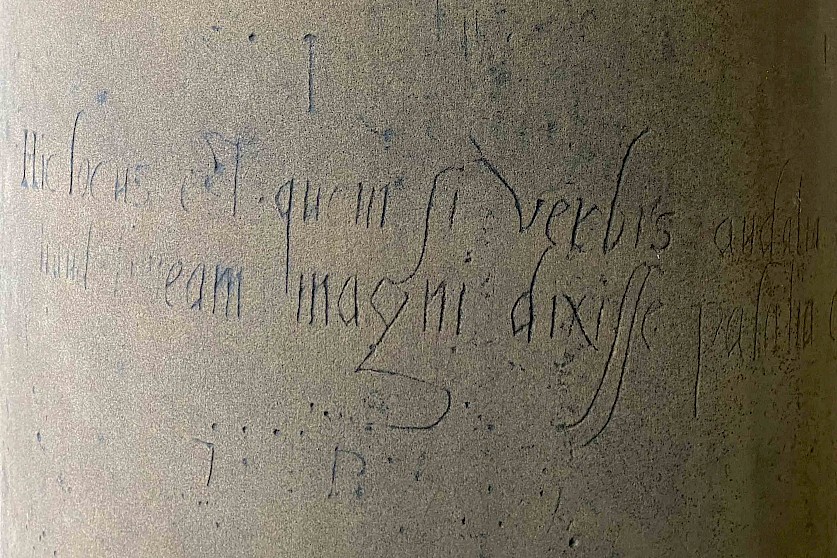 Hic locus est quem si verbis audati
haud timeam magni dixisse palatia